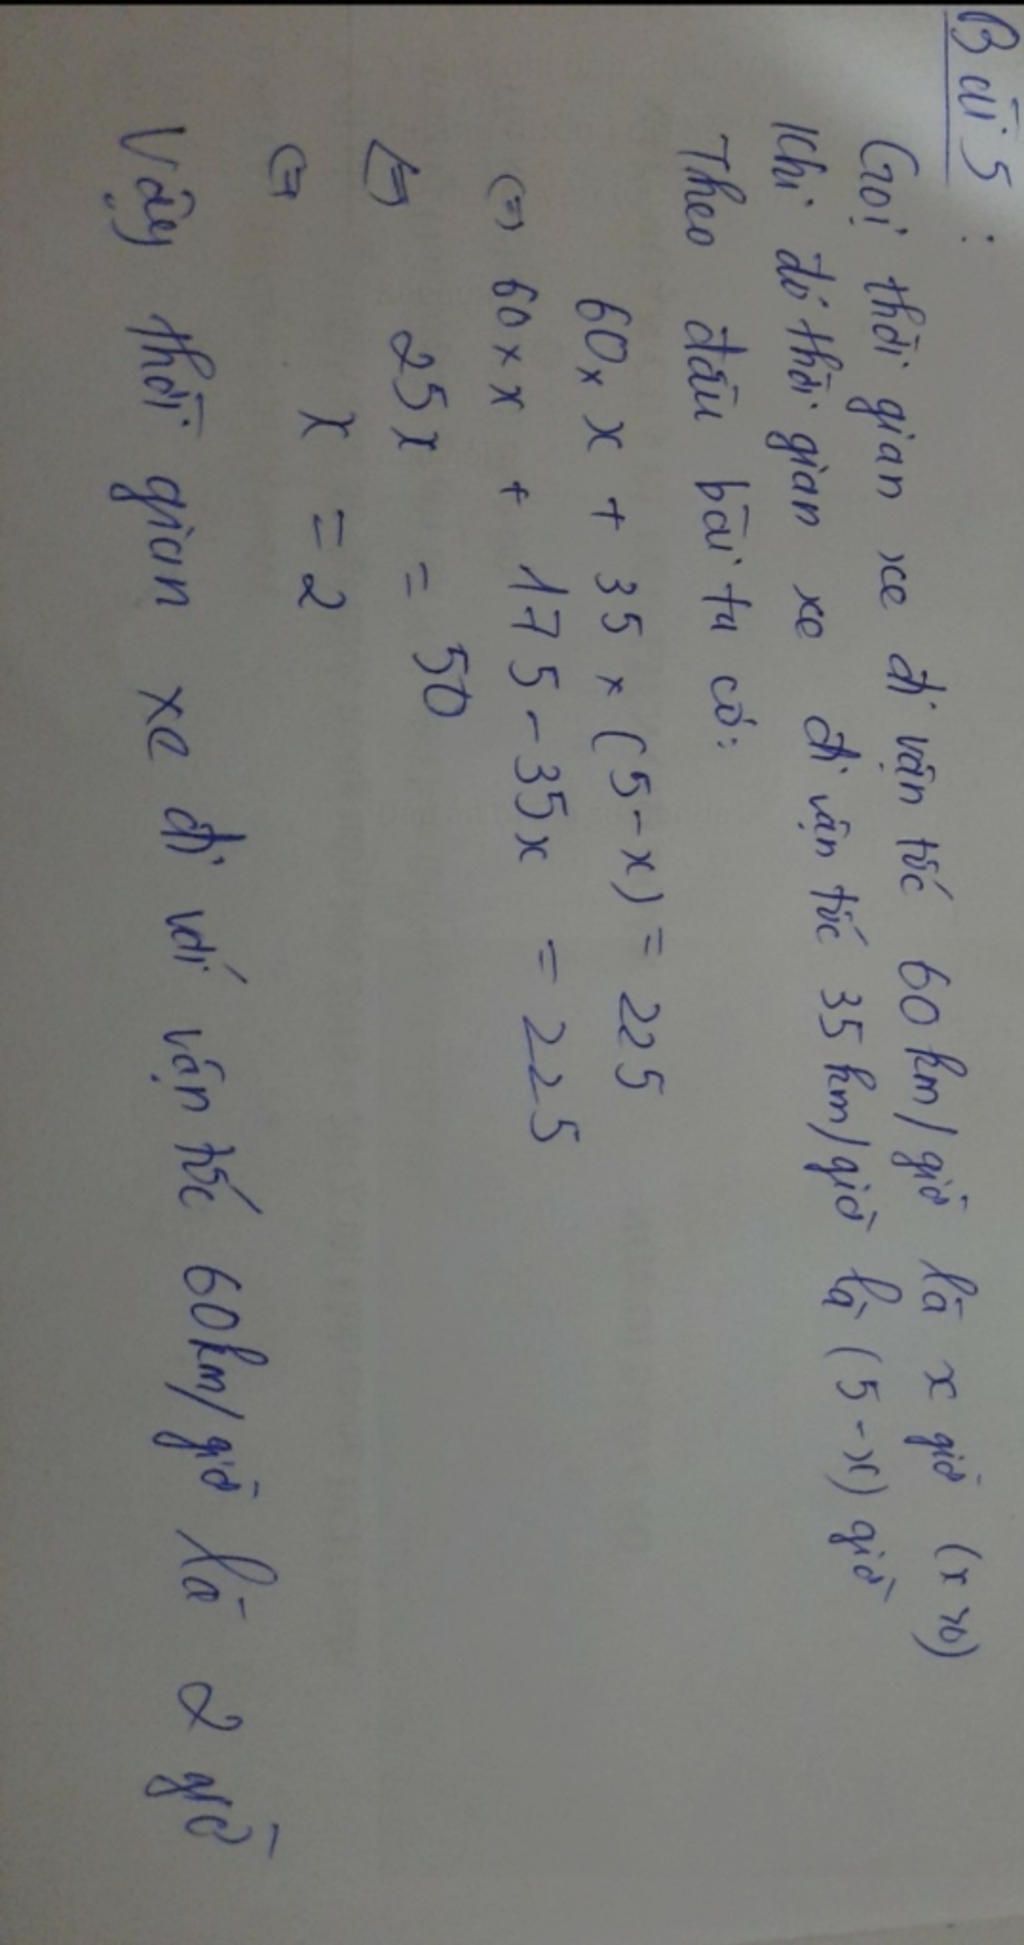 Bài 5:
Gọi thời gian xe đi vận tốc 60km/giờ là x giờ (x>0)
Khi đó thời gian xe đi vận tốc 35km/giờ là (5-x) giờ
Theo đầu bài ta có:
60 × x + 35 × (5-x) = 225
⇔ 60 × x + 175 - 35x = 225
⇔ 25x = 50
⇔ x = 2
Vậy thời gian xe đi với vận tốc 60km/giờ là 2 giờ